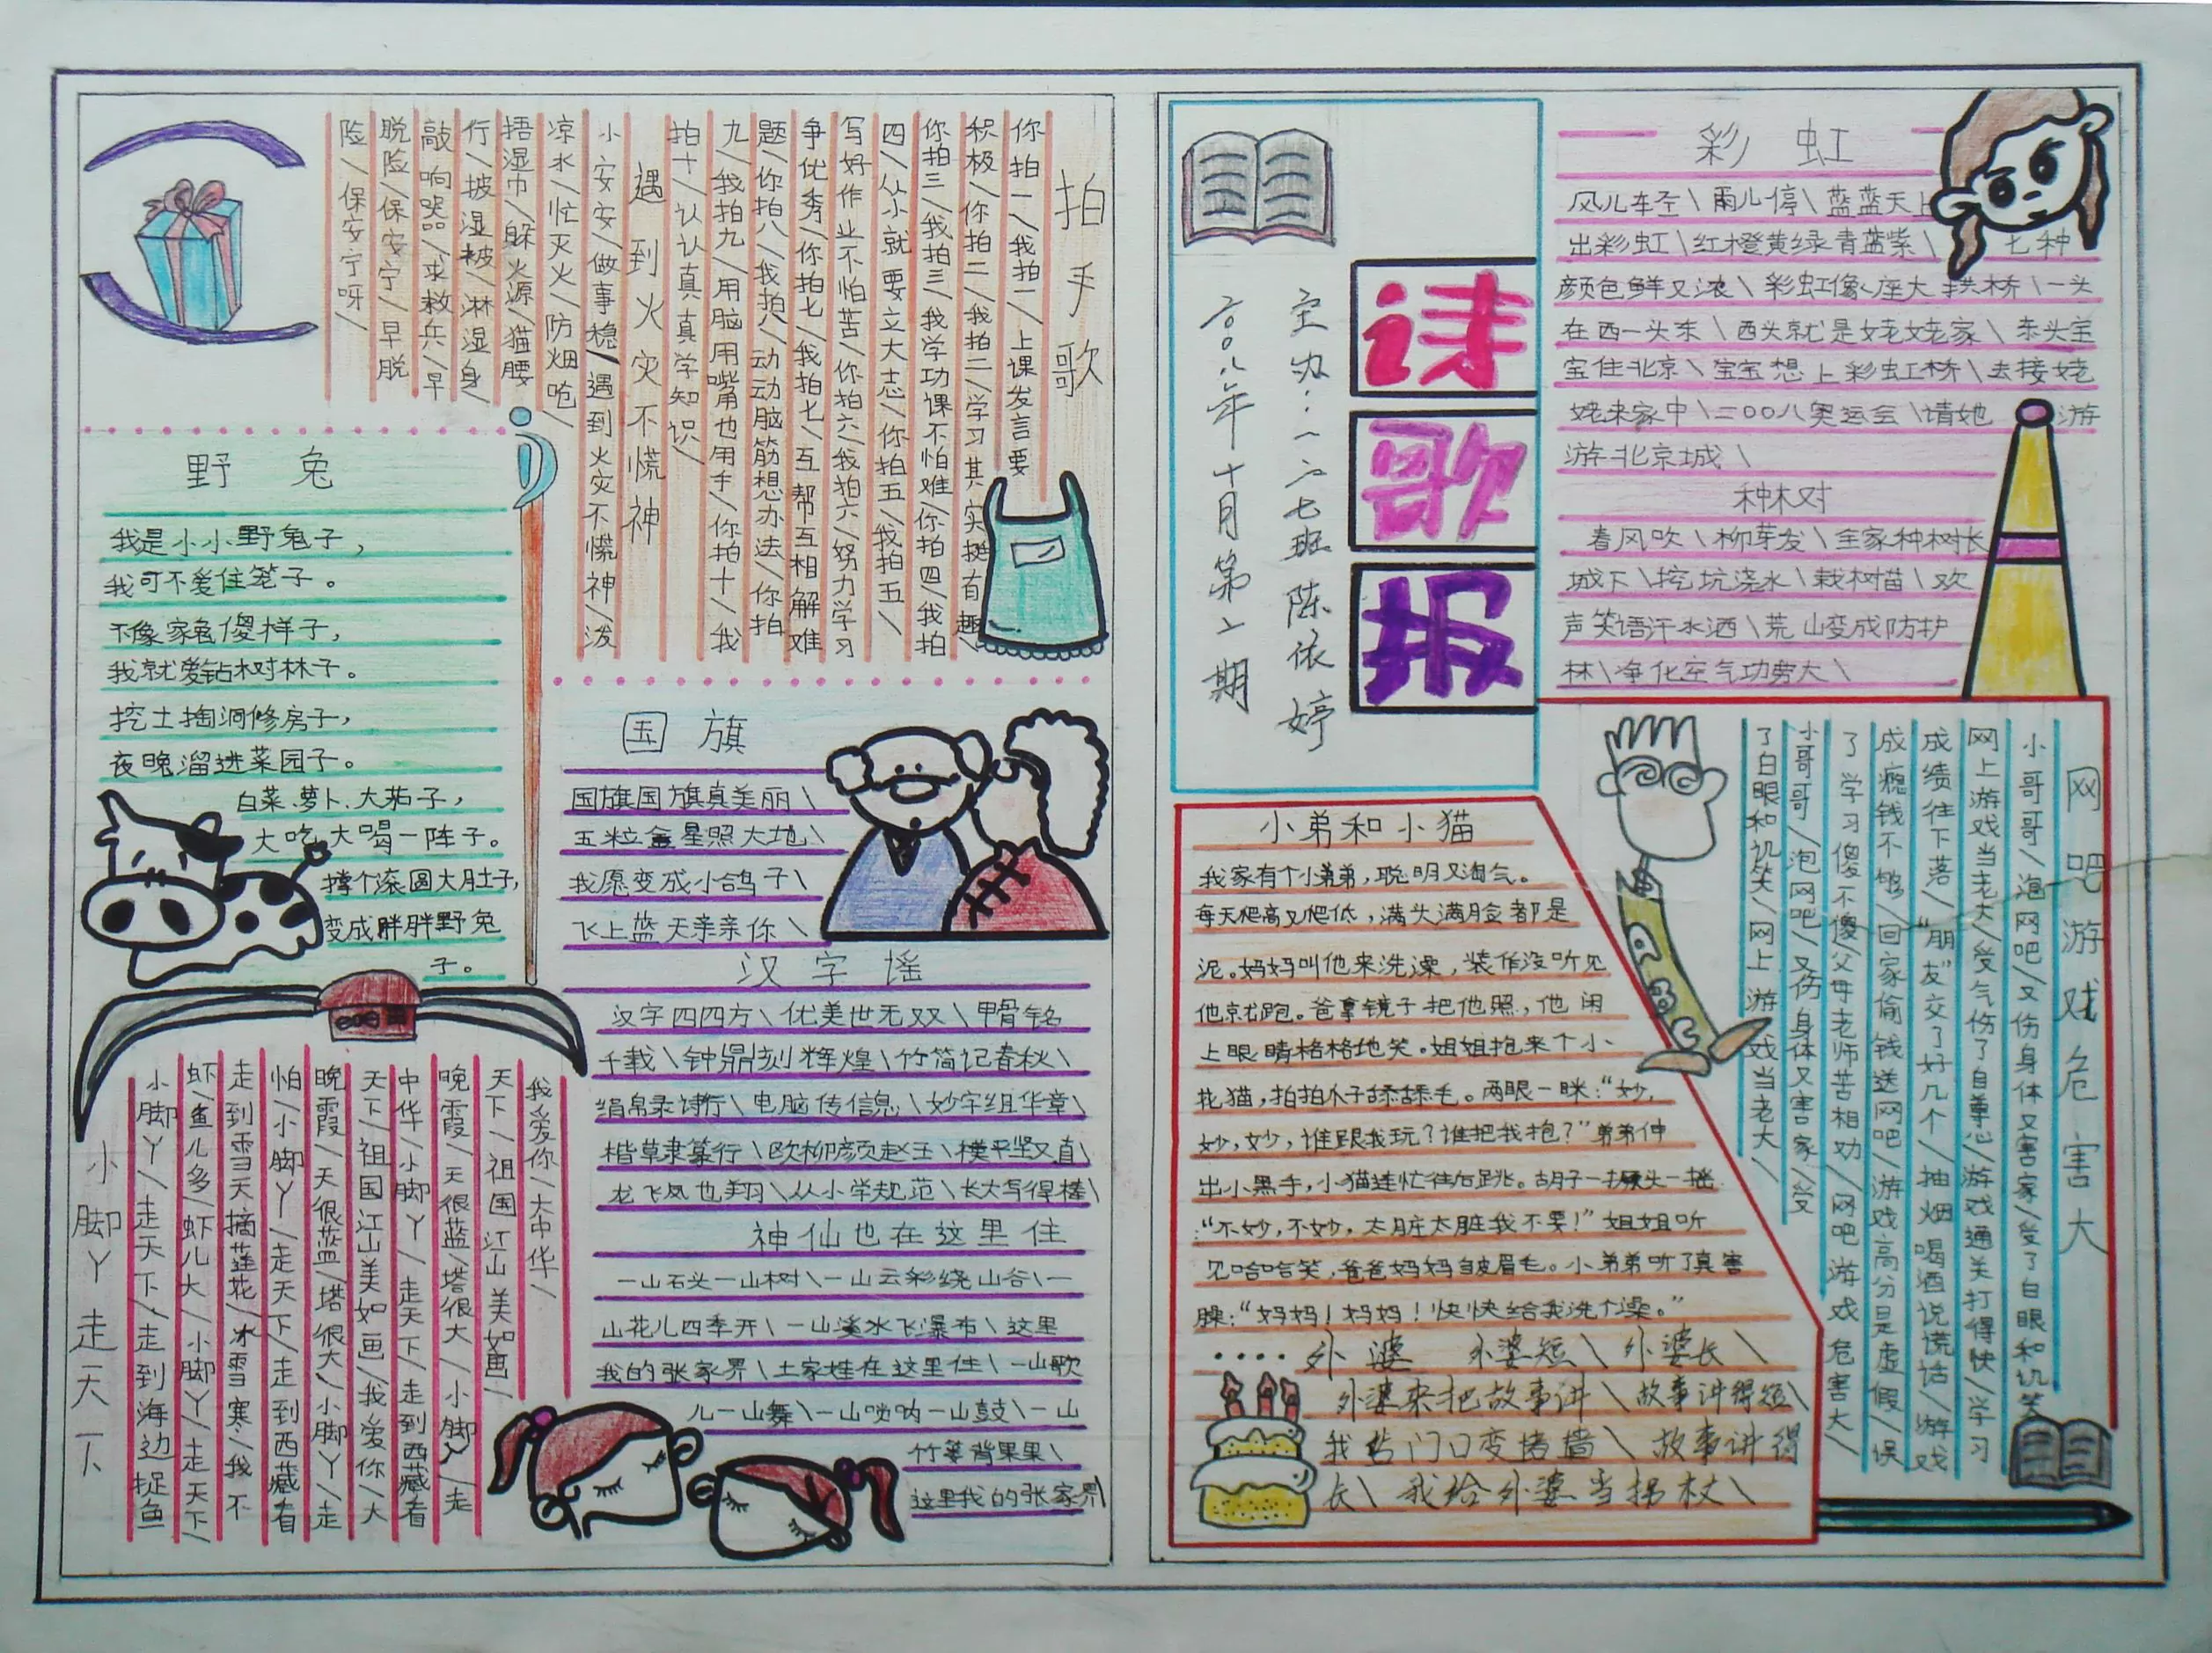 拍手歌
你拍一/我拍一/上课发言要
积极/你拍二/我拍二/学习其实挺有趣
你拍三/我拍三/我学功课不怕难/你拍四/我拍
四/从小就要立大志/你拍五/我拍五/
写好作业不怕苦/你拍六/我拍六/努力学习
争优秀/你拍七/我拍七/互帮互相解难
题/你拍八/我拍八/动动脑筋想办法/你拍
九/我拍九/用脑用嘴也用手/你拍十/我
拍十/认认真真学知识/
遇到火灾不慌神
小安安/做事稳/遇到火灾不慌神/泼
凉水/忙灭火/防烟呛/
捂湿巾/躲火源/猫腰
行/披湿被/淋湿身/
敲响器/求救兵/早
脱险/保安宁/早脱
险/保安宁呀/
野兔
我是小小野兔子，
我可不爱住笼子。
不像家兔傻样子，
我就爱钻树林子。
挖土掏洞修房子，
夜晚溜进菜园子。
白菜、萝卜、大茄子，
大吃大喝一阵子。
撑个滚圆大肚子，
变成胖胖野兔
子。
国旗
国旗国旗真美丽\
五粒金星照大地\
我愿变成小鸽子\
飞上蓝天亲亲你\
汉字谣
汉字四四方\优美世无双\甲骨铭
千载\钟鼎刻辉煌\竹简记春秋\
绢帛录诗行\电脑传信息\妙字组华章\
楷草隶篆行\欧柳颜赵王\横平竖又直\
龙飞凤也翔\从小学规范\长大写得棒\
神仙也在这里住
一山石头一山树\一山云彩绕山谷\一
山花儿四季开\一山溪水飞瀑布\这里
我的张家界\土家娃在这里住\一山歌
儿一山舞\一山唢呐一山鼓\一山
竹篓背果果\
这里我的张家界\
小脚丫走天下
小脚丫/走天下/走到海边捉鱼
虾/鱼儿多/虾儿大/小脚丫/走天下/
走到雪天摘莲花/冰雪寒/我不
怕/小脚丫/走天下/走到西藏看
晚霞/天很蓝/塔很大/小脚丫/走
天下/祖国江山美如画/我爱你/大
中华/小脚丫/走天下/走到西藏看
晚霞/天很蓝/塔很大/小脚丫/走
天下/祖国江山美如画/
我爱你/大中华/
诗歌报
主办：一二七班 陈依婷
二〇〇八年十月第二期
彩虹
风儿轻\雨儿停\蓝蓝天上
出彩虹\红橙黄绿青蓝紫\七种
颜色鲜又浓\彩虹像座大拱桥\一头
在西一头东\西头就是姥姥家\东头宝
宝住北京\宝宝想上彩虹桥\去接姥
姥来家中\二〇〇八奥运会\请她游
游北京城\
种树
春风吹\柳芽发\全家种树长
城下\挖坑浇水\栽树苗\欢
声笑语汗水洒\荒山变成防护
林\净化空气功劳大\
小弟和小猫
我家有个小弟弟，聪明又淘气。
每天爬高又爬低，满头满脸都是
泥。妈妈叫他来洗澡，装作没听见
他就跑。爸拿镜子把他照，他闭
上眼睛格格地笑。姐姐抱来个小
花猫，拍拍爪子舔舔毛。两眼一眯：“妙，
妙，妙，谁跟我玩？谁把我抱？”弟弟伸
出小黑手，小猫连忙往后跳。胡子一撅头一摇
：“不妙，不妙，太脏太脏我不要！”姐姐听
见哈哈笑，爸爸妈妈皱眉毛。小弟弟听了真害
臊：“妈妈！妈妈！快快给我洗个澡。”
外婆 外婆短\外婆长\
外婆来把故事讲\故事讲得短\
我站门口变堵墙\故事讲得
长\我给外婆当拐杖\
网吧游戏危害大
小哥哥/泡网吧/又伤身体又害家/受了白眼和讥笑
网上游戏当老大/受气伤了自尊心/游戏通关打得快/学习
成绩往下落/“朋友”交了好几个/抽烟喝酒说谎话/游戏
成瘾钱不够/回家偷钱送网吧/游戏高分是虚假/误
了学习傻不傻/父母老师苦相劝/网吧游戏危害大/
小哥哥/泡网吧/又伤身体又害家/受
了白眼和讥笑/网上游戏当老大/